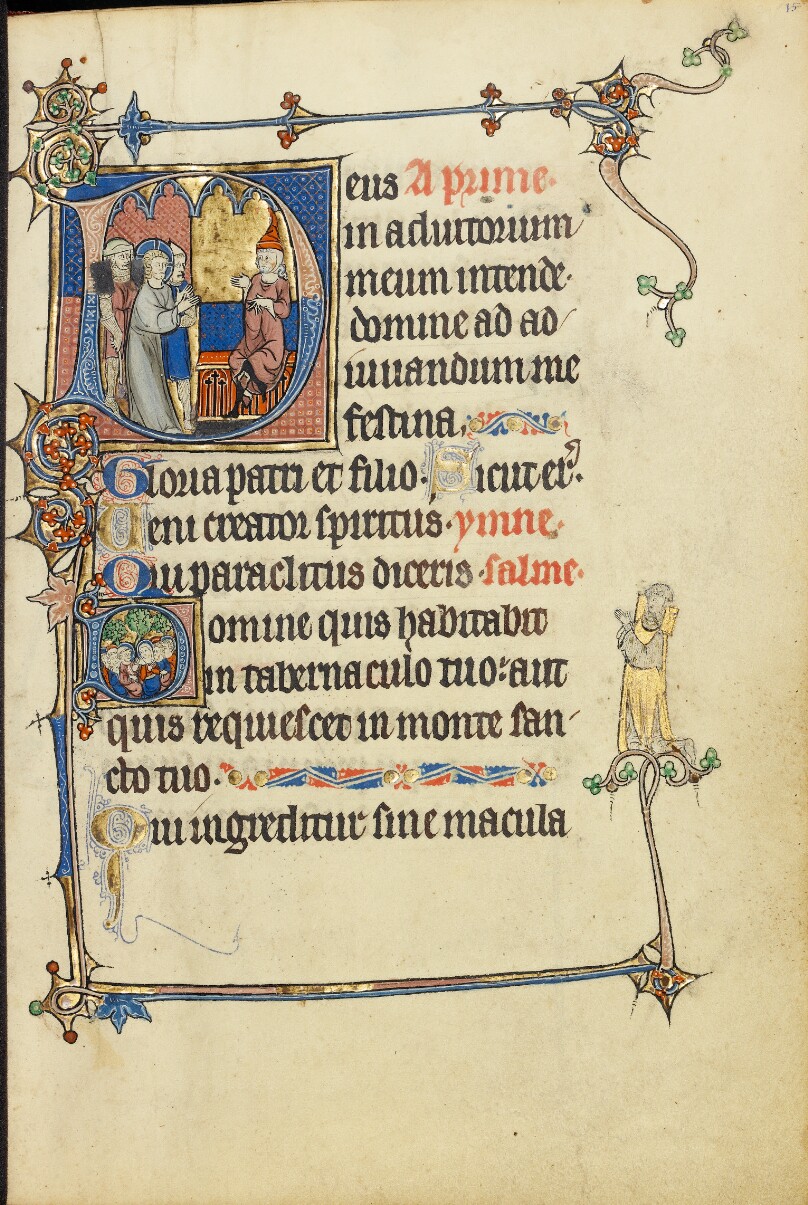 15
Deus A prime.
in adiutorium
meum intende.
domine ad ad
iuuandum me
festina.
Gloria patri et filio. Sicut er̾.
Ueni creator spiritus. ymne.
Qui paraclitus diceris. salme.
Domine quis habitabit
in tabernaculo tuo: aut
quis requiescet in monte san
cto tuo.
Qui ingreditur sine macula